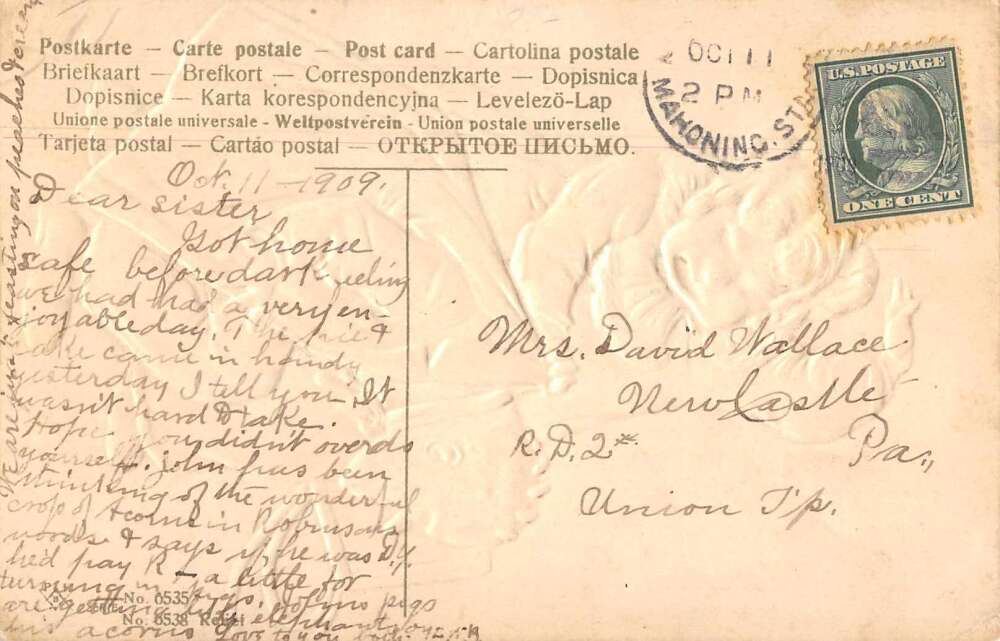 Postkarte — Carte postale — Post card — Cartolina postale
Briefkaart — Brefkort — Correspondenzkarte — Dopisnica
Dopisnice — Karta korespondencyjna — Levelező-Lap
Unione postale universale - Weltpostverein - Union postale universelle
Tarjeta postal — Cartáo postal — ОТКРЫТОЕ ПИСЬМО.
OCT 11
2 PM
MAHONING. STA
U.S. POSTAGE
ONE CENT
Oct. 11 - 1909.
Dear sister
Got home
safe before dark, feeling
we had had a very en-
joyable day. The pie &
cake came in handy
yesterday I tell you. It
wasn't hard to take.
Hope you didn't overdo
yourself. John has been
thinking of the wonderful
crop of acorns in Robinsons
woods & says if he was D.W.
he'd pay R— a little for
turning in pigs. Johns pigs
are getting like elephants on
his acorns Love to you both
Mrs. David Wallace
New Castle
R.D. 2 Pa.,
Union Tp.
No. 6535
No. 6538 Relief
We are feasting on peaches